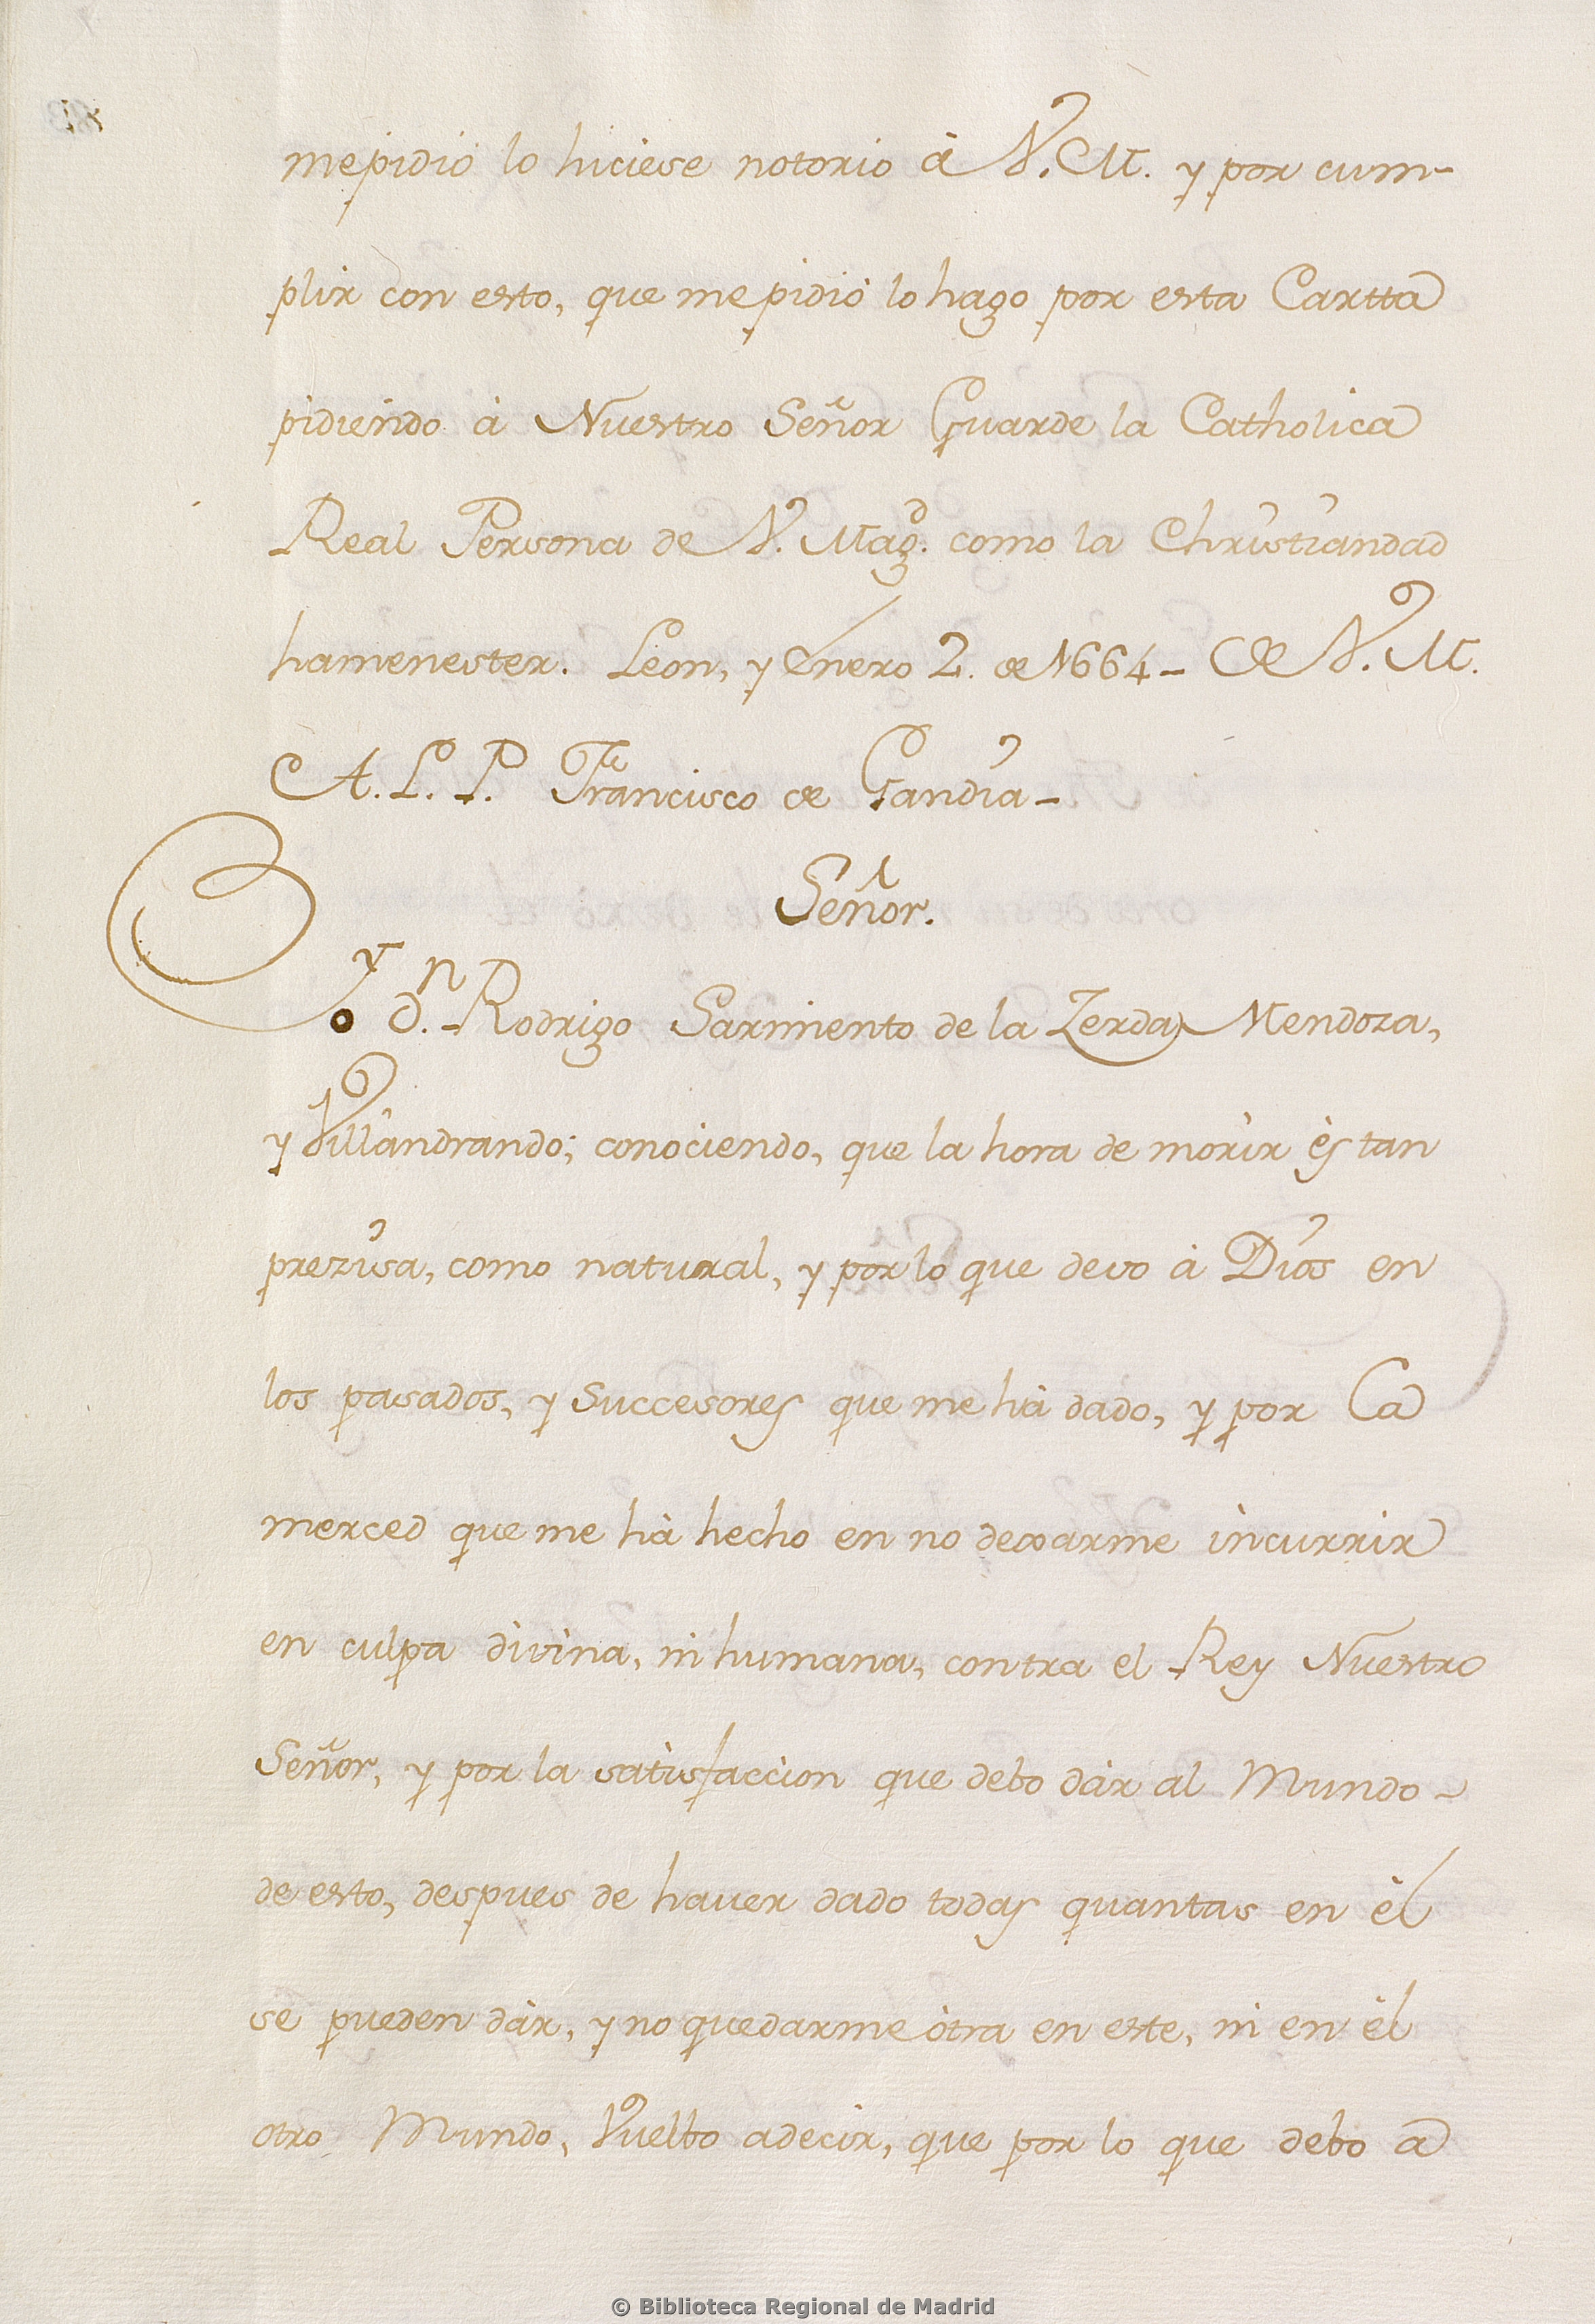 mepidiò lo hiciese notorio à V. M. y por cum-
plir con esto, que mepidiò lo hago por esta Cartta
pidiendo à Nuestro Señor Guarde la Catholica
Real Persona de V. Mag.d como la Christiandad
hamenester. Leon, y Enero 2. de 1664- De V. M.
A. L. P. Francisco de Gandia-
Señor.
Yo d.n Rodrigo Sarmiento de la Zerda Mendoza,
y Villandrando; conociendo, que la hora de morir ès tan
prezisa, como natural, y por lo que devo à Dios en
los pasados, y successores que me hà dado, y por la
merced que me hà hecho en no dexarme incurrir
en culpa divina, ni humana, contra el Rey Nuestro
Señor, y por la satisfaccion que debo dàr al Mundo
de esto, despues de haver dado todas quantas en èl
se pueden dàr, y no quedarme òtra en este, ni en èl
otro Mundo, Vuelbo adecir, que por lo que debo a
© Biblioteca Regional de Madrid